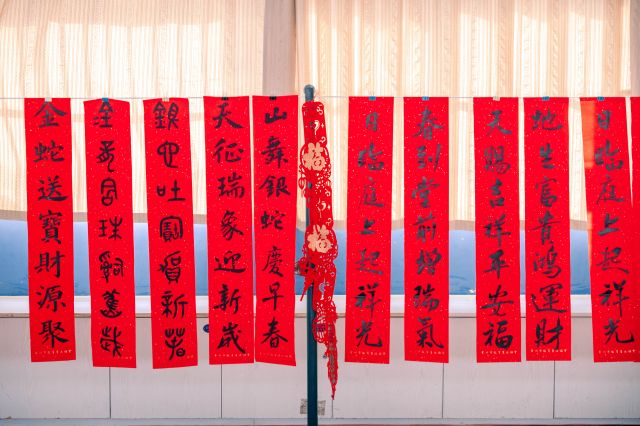 日臨庭上起祥光
地生富貴鴻運財
天賜吉祥平安福
春到堂前增瑞氣
日臨庭上起祥光
福
福
山舞銀蛇慶早春
天征瑞象迎新歲
銀蛇吐寶賀新春
金蛇含珠辭舊歲
金蛇送寶財源聚